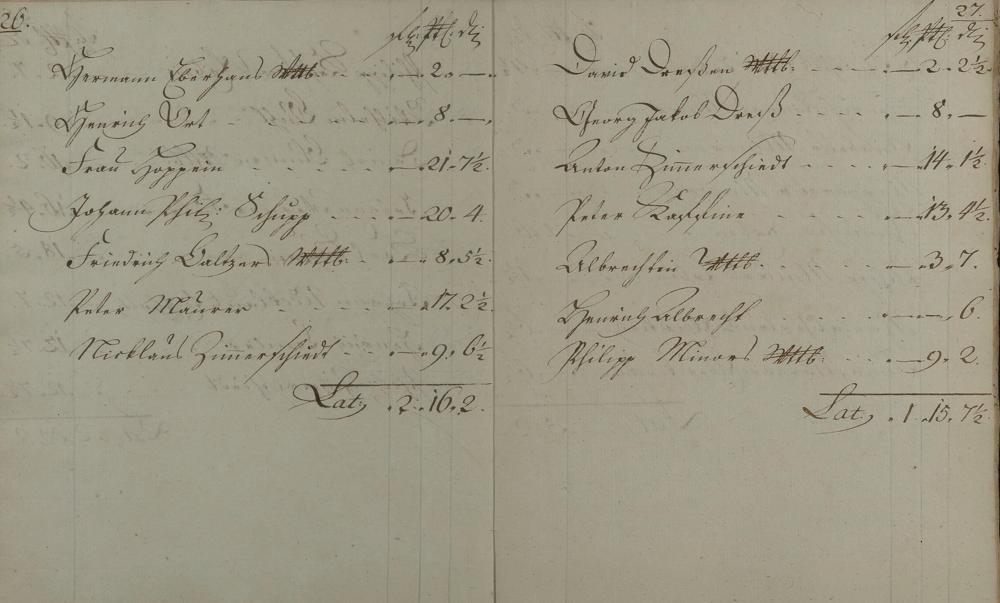 26.
fl. ß. d.
Hermann Eberhans Wttb. — 2. —.
Henrich Ort — 8. —.
Frau Hoppein — 21. 7½.
Johann Phil: Schupp — 20. 4.
Friedrich Baltzers Wttb. — 8. 5½.
Peter Maurer — 17. 2½
Nicklaus Zimerschiedt — 9. 6½
Lat. 2. 16. 2.
27.
fl. ß. d.
David Dreßen Wttb. — 2. 2½.
Georg Jakob Dreß — 8. —
Anton Zimerschiedt — 14. 1½
Peter — 13. 4½.
Albrechtin Wttb. — 3. 7.
Henrich Albrecht — —. 6.
Philipp Minors Wttb. — 9. 2.
Lat. 1. 15. 7½